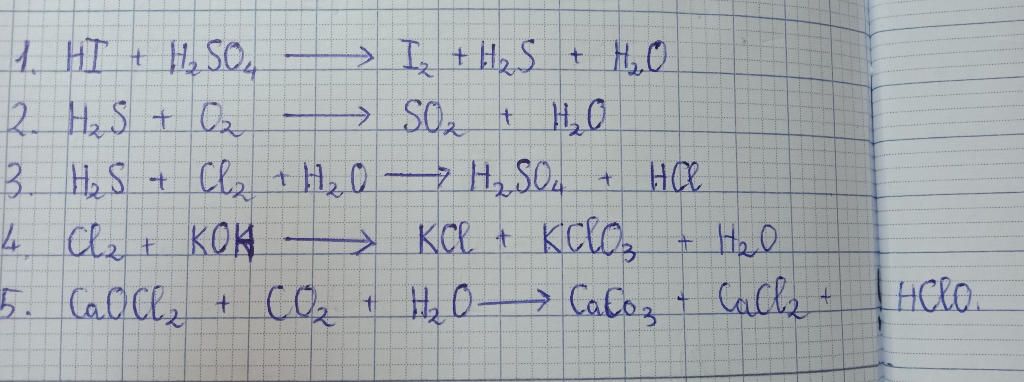 1. HI + H₂SO₄ ⟶ I₂ + H₂S + H₂O
2. H₂S + O₂ ⟶ SO₂ + H₂O
3. H₂S + Cl₂ + H₂O ⟶ H₂SO₄ + HCl
4. Cl₂ + KOH ⟶ KCl + KClO₃ + H₂O
5. CaOCl₂ + CO₂ + H₂O ⟶ CaCo₃ + CaCl₂ + HClO.